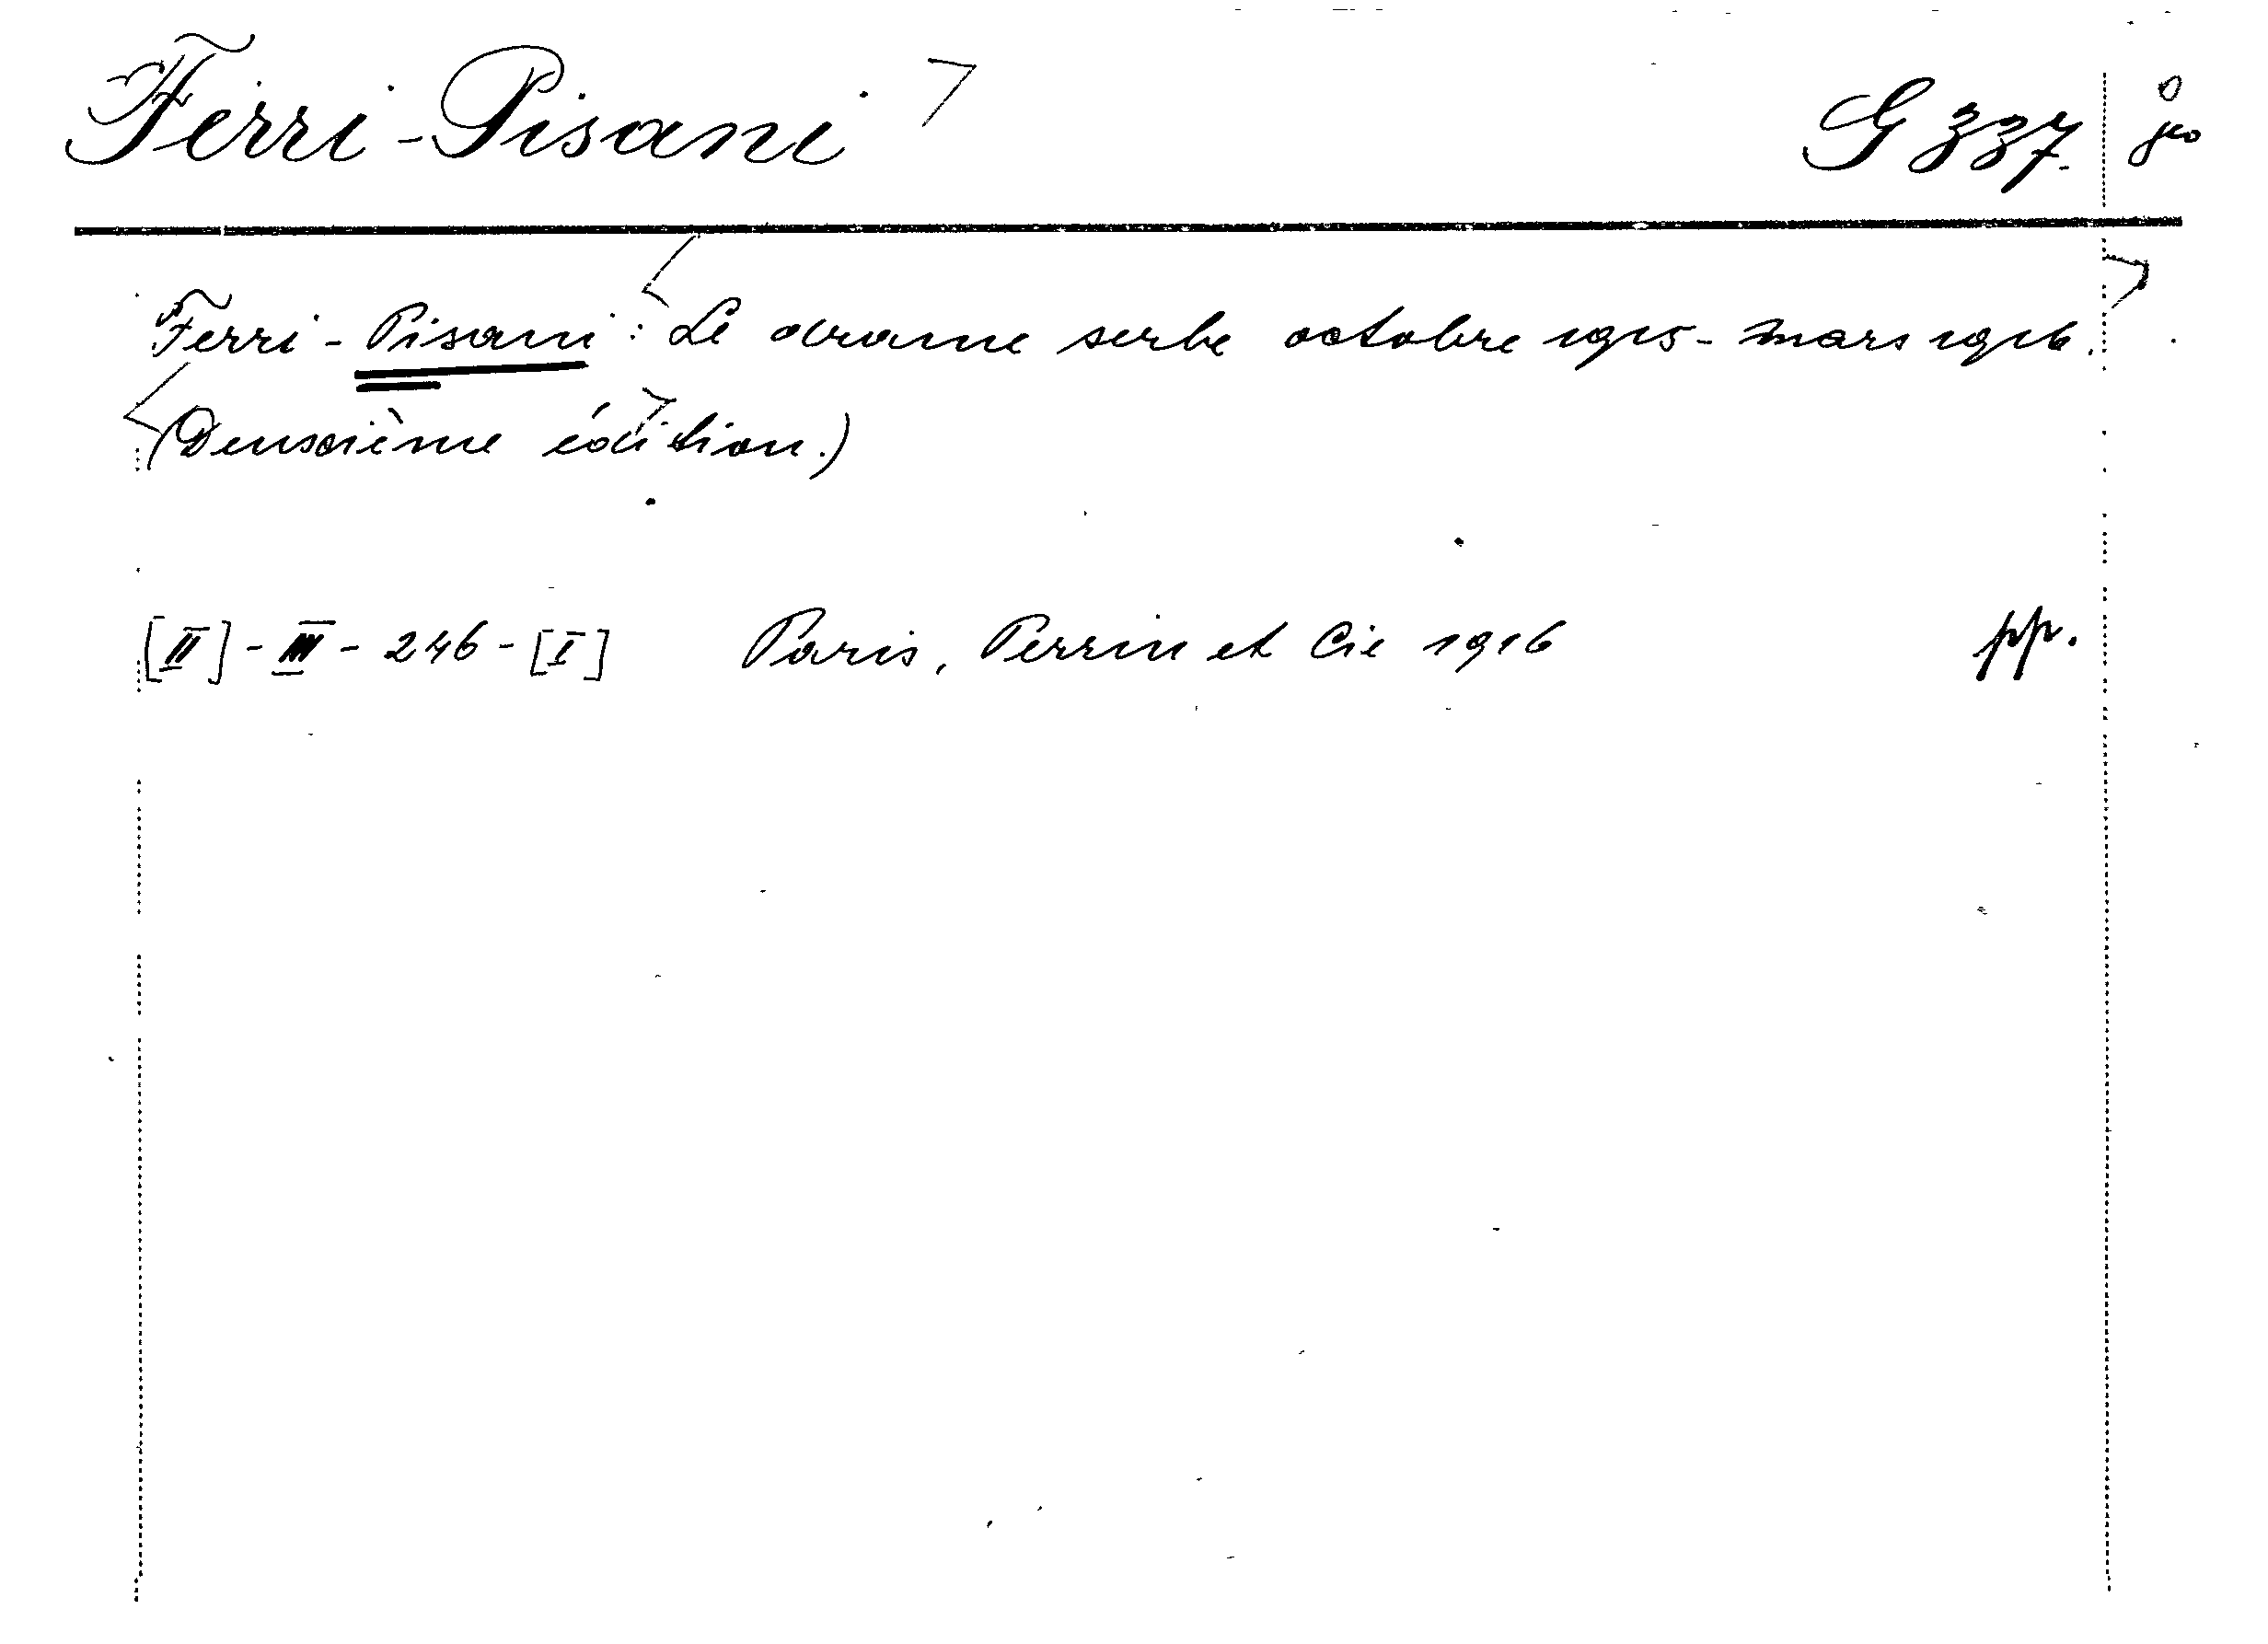 Ferri-Pisani G 337.
Ferri-Pisani: Le drame serbe octobre 1915-mars 1916.
(Deuxième édition.)
[II]-III-246-[I] Paris, Perrin et Cie 1916 pp.